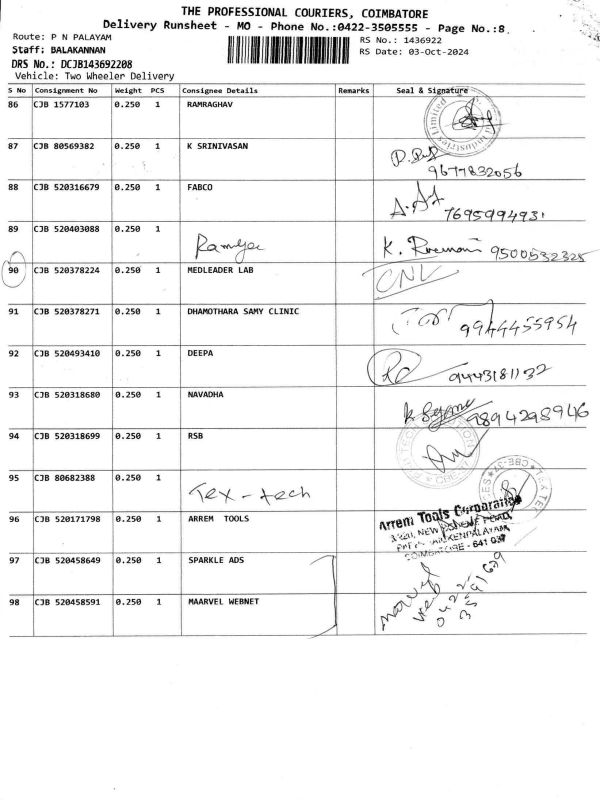 THE PROFESSIONAL COURIERS, COIMBATORE
Delivery Runsheet - MO - Phone No.:0422-3505555 - Page No.:8
Route: P N PALAYAM
RS No.: 1436922
Staff: BALAKANNAN
RS Date: 03-Oct-2024
DRS No.: DCJB143692208
Vehicle: Two Wheeler Delivery
S No Consignment No Weight PCS Consignee Details Remarks Seal & Signature
86 CJB 1577103 0.250 1 RAMRAGHAV
87 CJB 80569382 0.250 1 K SRINIVASAN
9677832056
88 CJB 520316679 0.250 1 FABCO
7695994931
89 CJB 520403088 0.250 1
Ramya K. 9500532325
90 CJB 520378224 0.250 1 MEDLEADER LAB
91 CJB 520378271 0.250 1 DHAMOTHARA SAMY CLINIC
9944455954
92 CJB 520493410 0.250 1 DEEPA
9443181132
93 CJB 520318680 0.250 1 NAVADHA
9894298946
94 CJB 520318699 0.250 1 RSB
95 CJB 80682388 0.250 1
Tex-tech
96 CJB 520171798 0.250 1 ARREM TOOLS
Arrem Tools Corporation
COIMBATORE - 641 037
97 CJB 520458649 0.250 1 SPARKLE ADS
98 CJB 520458591 0.250 1 MAARVEL WEBNET
Marvel
web
0422
3591629